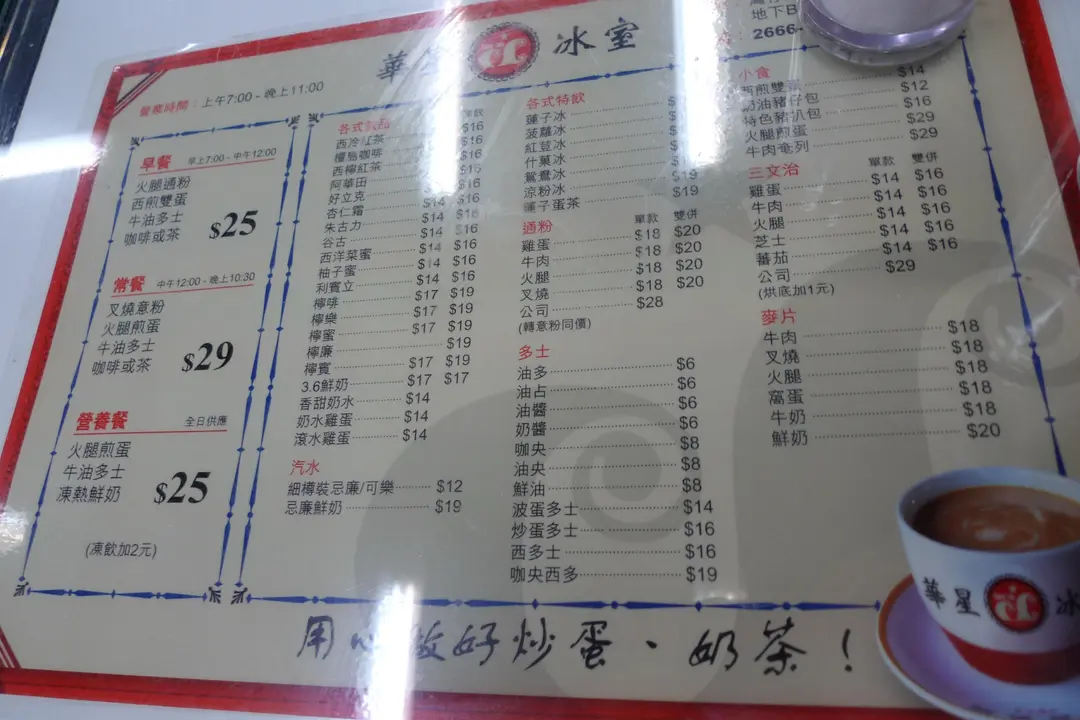 華星冰室
地下B
2666-
營業時間：上午7:00 - 晚上11:00
早餐 早上7:00 - 中午12:00
火腿通粉
西煎雙蛋
牛油多士
咖啡或茶
$25
常餐 中午12:00 - 晚上10:30
叉燒意粉
火腿煎蛋
牛油多士
咖啡或茶
$29
營養餐 全日供應
火腿煎蛋
牛油多士
凍熱鮮奶
$25
(凍飲加2元)
各式
西冷紅茶 $16
檀島咖啡 $16
西檸紅茶 $16
阿華田
好立克 $16
杏仁霜 $14 $16
朱古力 $14 $16
谷古 $14 $16
西洋菜蜜 $14 $16
柚子蜜 $14 $16
利賓立 $14 $16
檸啡 $17 $19
檸樂 $17 $19
檸蜜 $17 $19
檸廉 $19
檸賓 $17 $19
3.6鮮奶 $17 $17
香甜奶水 $14
奶水雞蛋 $14
滾水雞蛋 $14
汽水
細樽裝忌廉/可樂 $12
忌廉鮮奶 $19
各式特飲
蓮子冰
菠蘿冰
紅荳冰
什菓冰
鴛鴦冰
涼粉冰 $19
蓮子蛋茶 $19
通粉 單款 雙併
雞蛋 $18 $20
牛肉 $18 $20
火腿 $18 $20
叉燒 $18 $20
公司 $28
(轉意粉同價)
多士
油多 $6
油占 $6
油醬 $6
奶醬 $6
咖央 $8
油央 $8
鮮油 $8
波蛋多士 $14
炒蛋多士 $16
西多士 $16
咖央西多 $19
小食
西煎雙蛋 $14
奶油豬仔包 $12
特色豬扒包 $16
火腿煎蛋 $29
牛肉奄列 $29
三文治 單款 雙併
雞蛋 $14 $16
牛肉 $14 $16
火腿 $14 $16
芝士 $14 $16
蕃茄 $14 $16
公司 $29
(烘底加1元)
麥片
牛肉 $18
叉燒 $18
火腿 $18
窩蛋 $18
牛奶 $18
鮮奶 $20
用心做好炒蛋、奶茶！
華星 冰